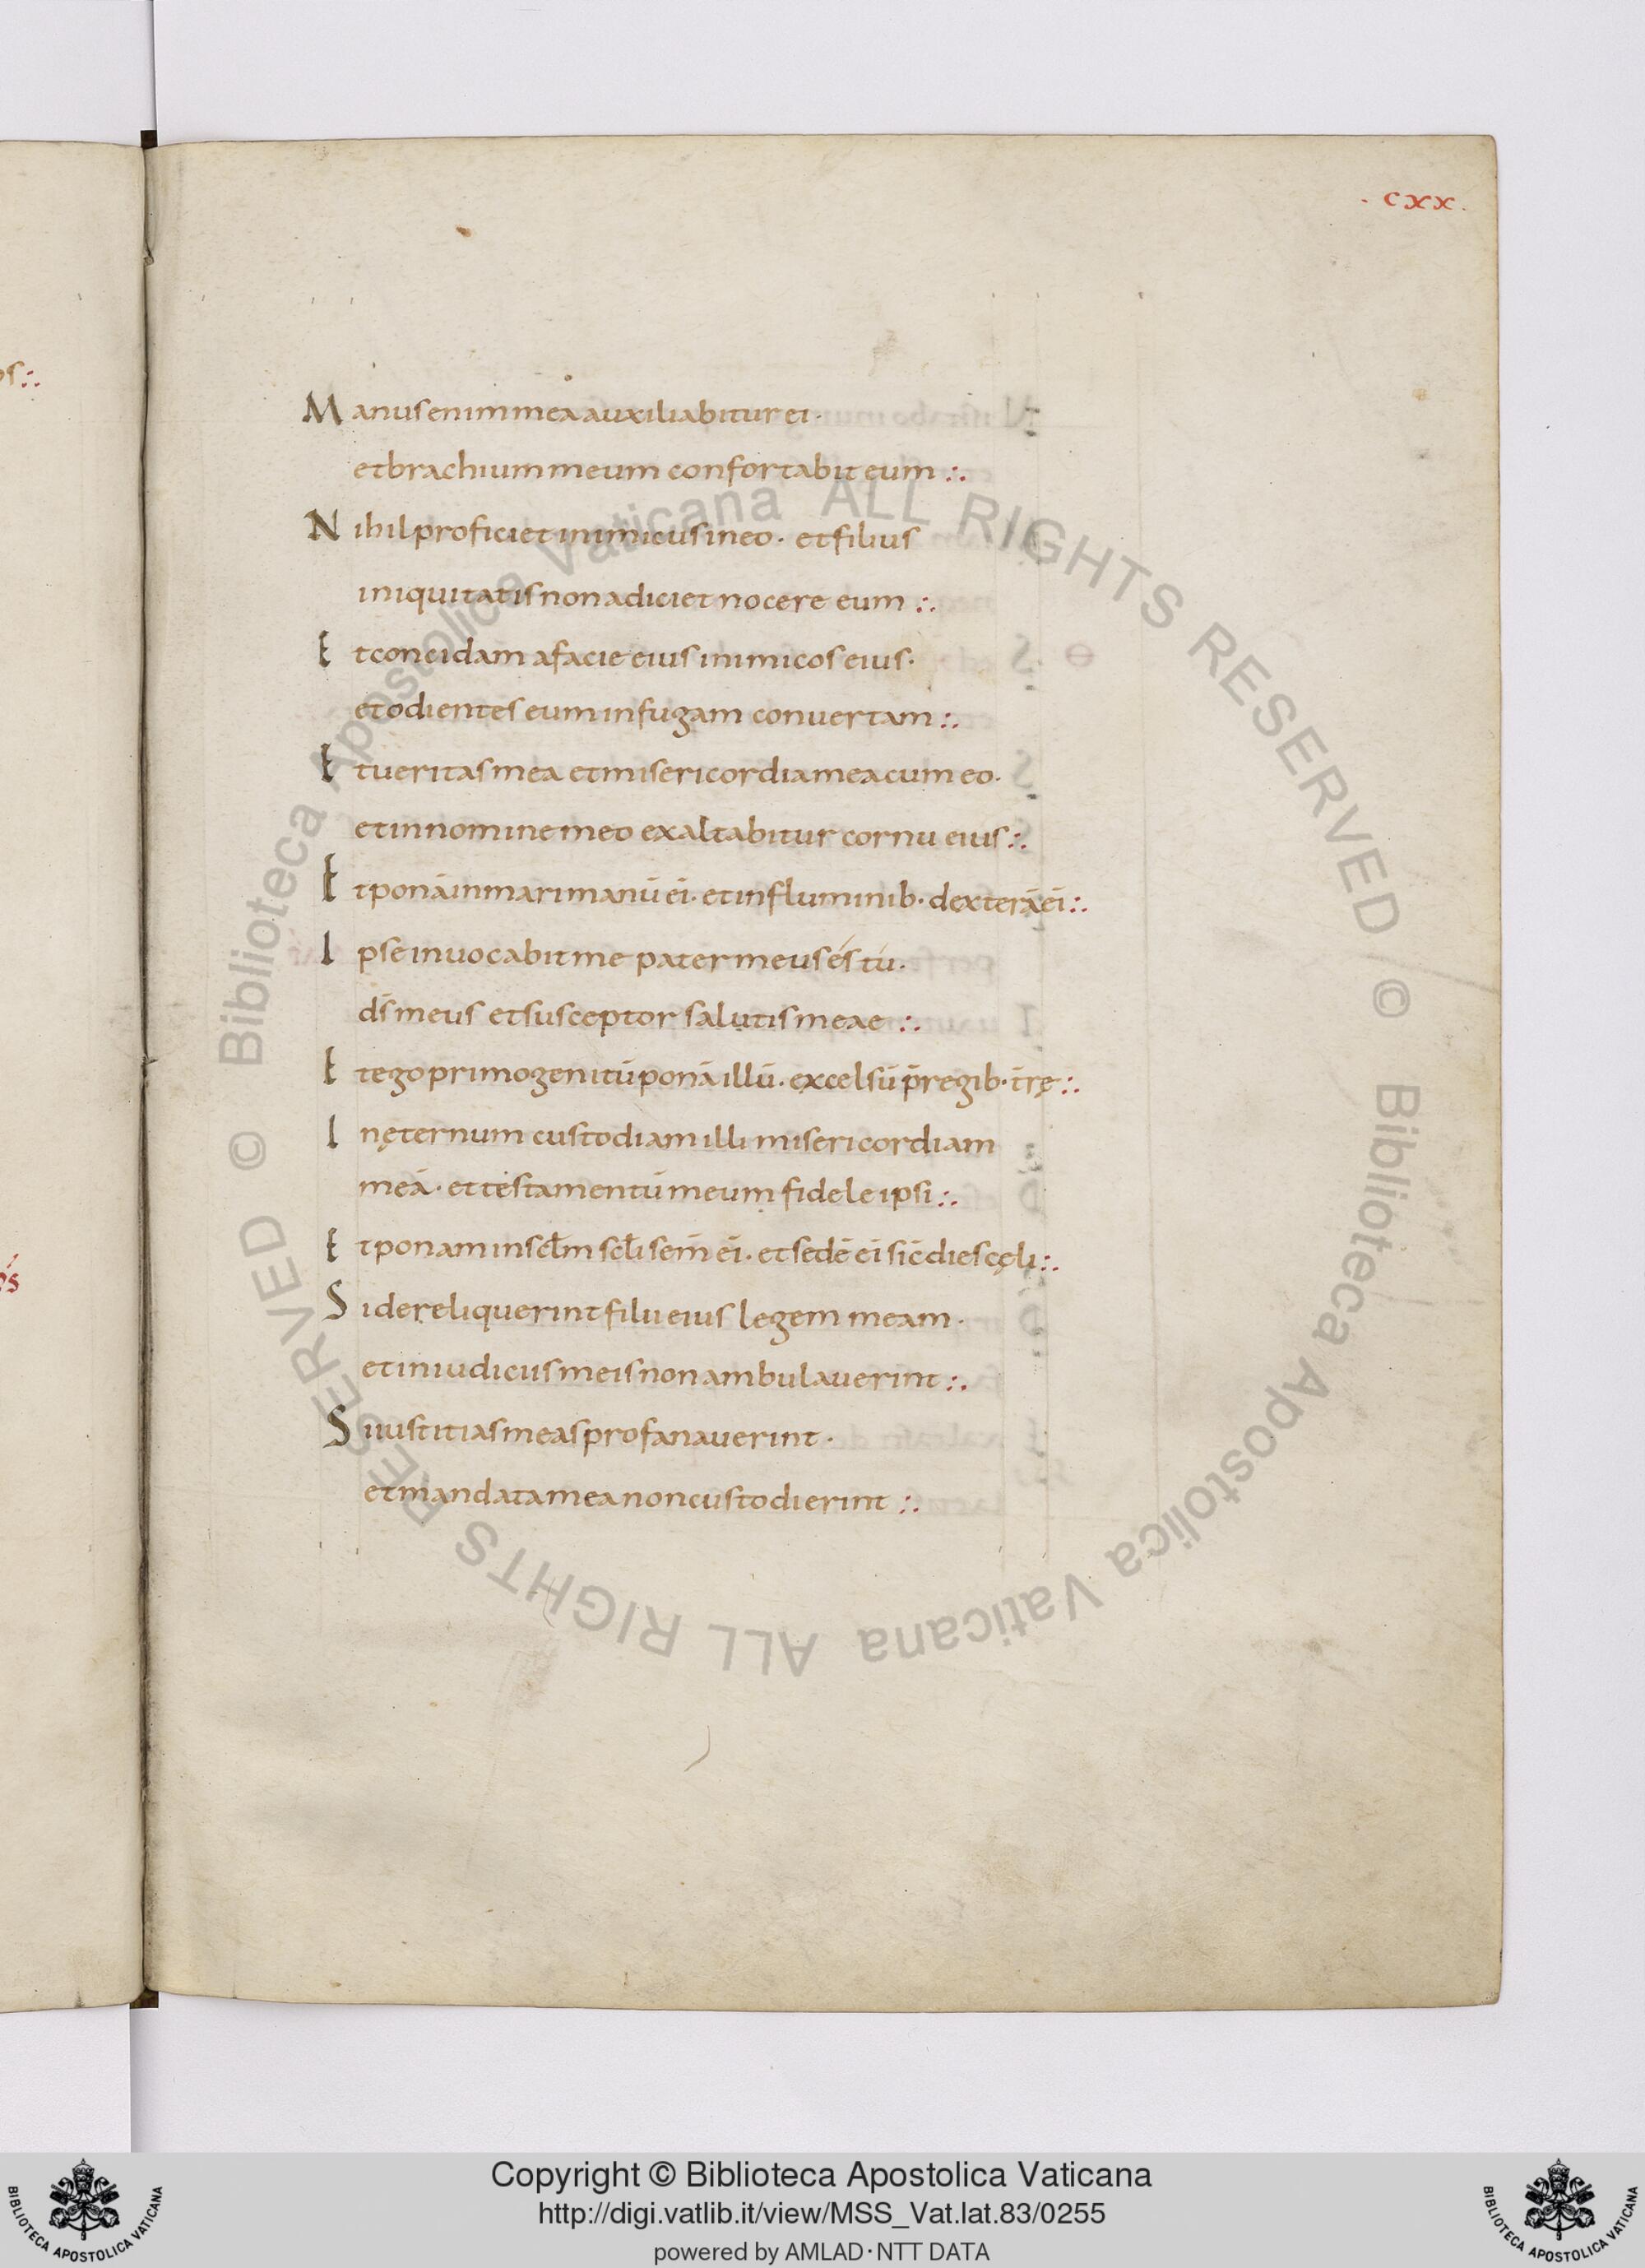 . cxx.
Manus enim mea auxiliabitur ei·
et brachium meum confortabit eum :.
Nihil proficiet inimicus in eo· et filius
iniquitatis non adiciet nocere eum :.
Et concidam a facie eius inimicos eius·
et odientes eum in fugam conuertam :.
Et ueritas mea et misericordia mea cum eo·
et in nomine meo exaltabitur cornu eius :.
Et ponā in mari manū ei̅· et in fluminib· dexterā ei̅ :.
Ipse inuocabit me pater meus és tú·
ds̅ meus et susceptor salutis meae :.
Et ego primogenitū ponā illū· excelsū p̅ regib· tr̅ę :.
In ęternum custodiam illi misericordiam
meā· et testamentū meum fidele ipsi :.
Et ponam in scl̅m scl̅i sem̅ ei̅· et sedē ei̅ sic̅ dies cęli :.
Si dereliquerint filii eius legem meam·
et in iudiciis meis non ambulauerint :.
Si iustitias meas profanauerint·
et mandata mea non custodierint :.
Copyright © Biblioteca Apostolica Vaticana
http://digi.vatlib.it/view/MSS_Vat.lat.83/0255
powered by AMLAD·NTT DATA
BIBLIOTECA APOSTOLICA VATICANA
BIBLIOTECA APOSTOLICA VATICANA
© Biblioteca Apostolica Vaticana ALL RIGHTS RESERVED © Biblioteca Apostolica Vaticana ALL RIGHTS RESERVED